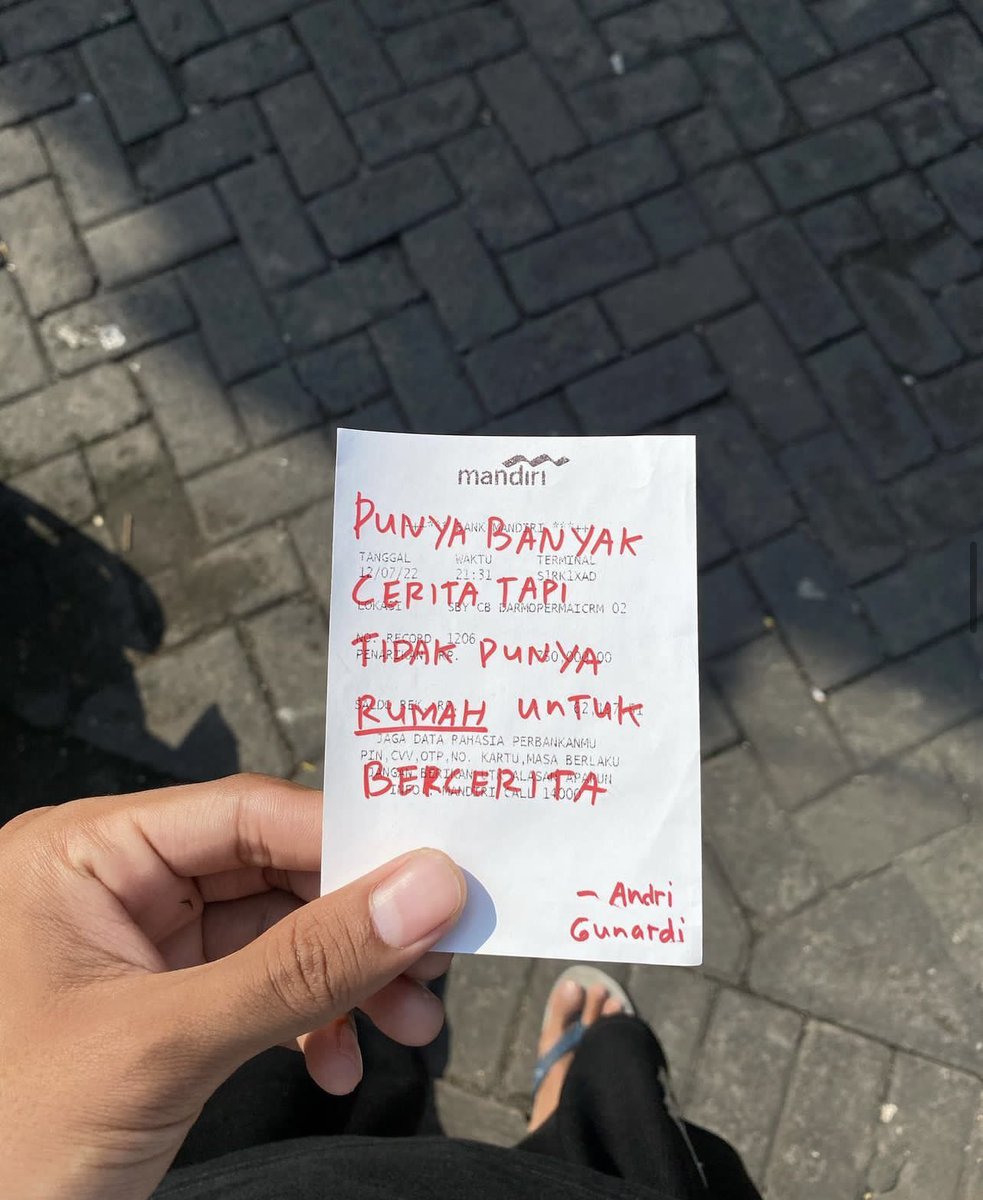 mandiri
PUNYA BANYAK
BANK MANDIRI
TANGGAL WAKTU TERMINAL
12/07/22 21:31 S1RK1XAD
CERITA TAPI
LOKASI SBY CB DARMOPERMAICRM 02
NO. RECORD 1206
TIDAK PUNYA
PENARIKAN RP.
SALDO REK. RP.
RUMAH UNTUK
JAGA DATA RAHASIA PERBANKANMU
PIN,CVV,OTP,NO. KARTU,MASA BERLAKU
JANGAN BERIKAN ALASAN APAPUN
BERCERITA
INFO: MANDIRI CALL 14000
- Andri
Gunardi